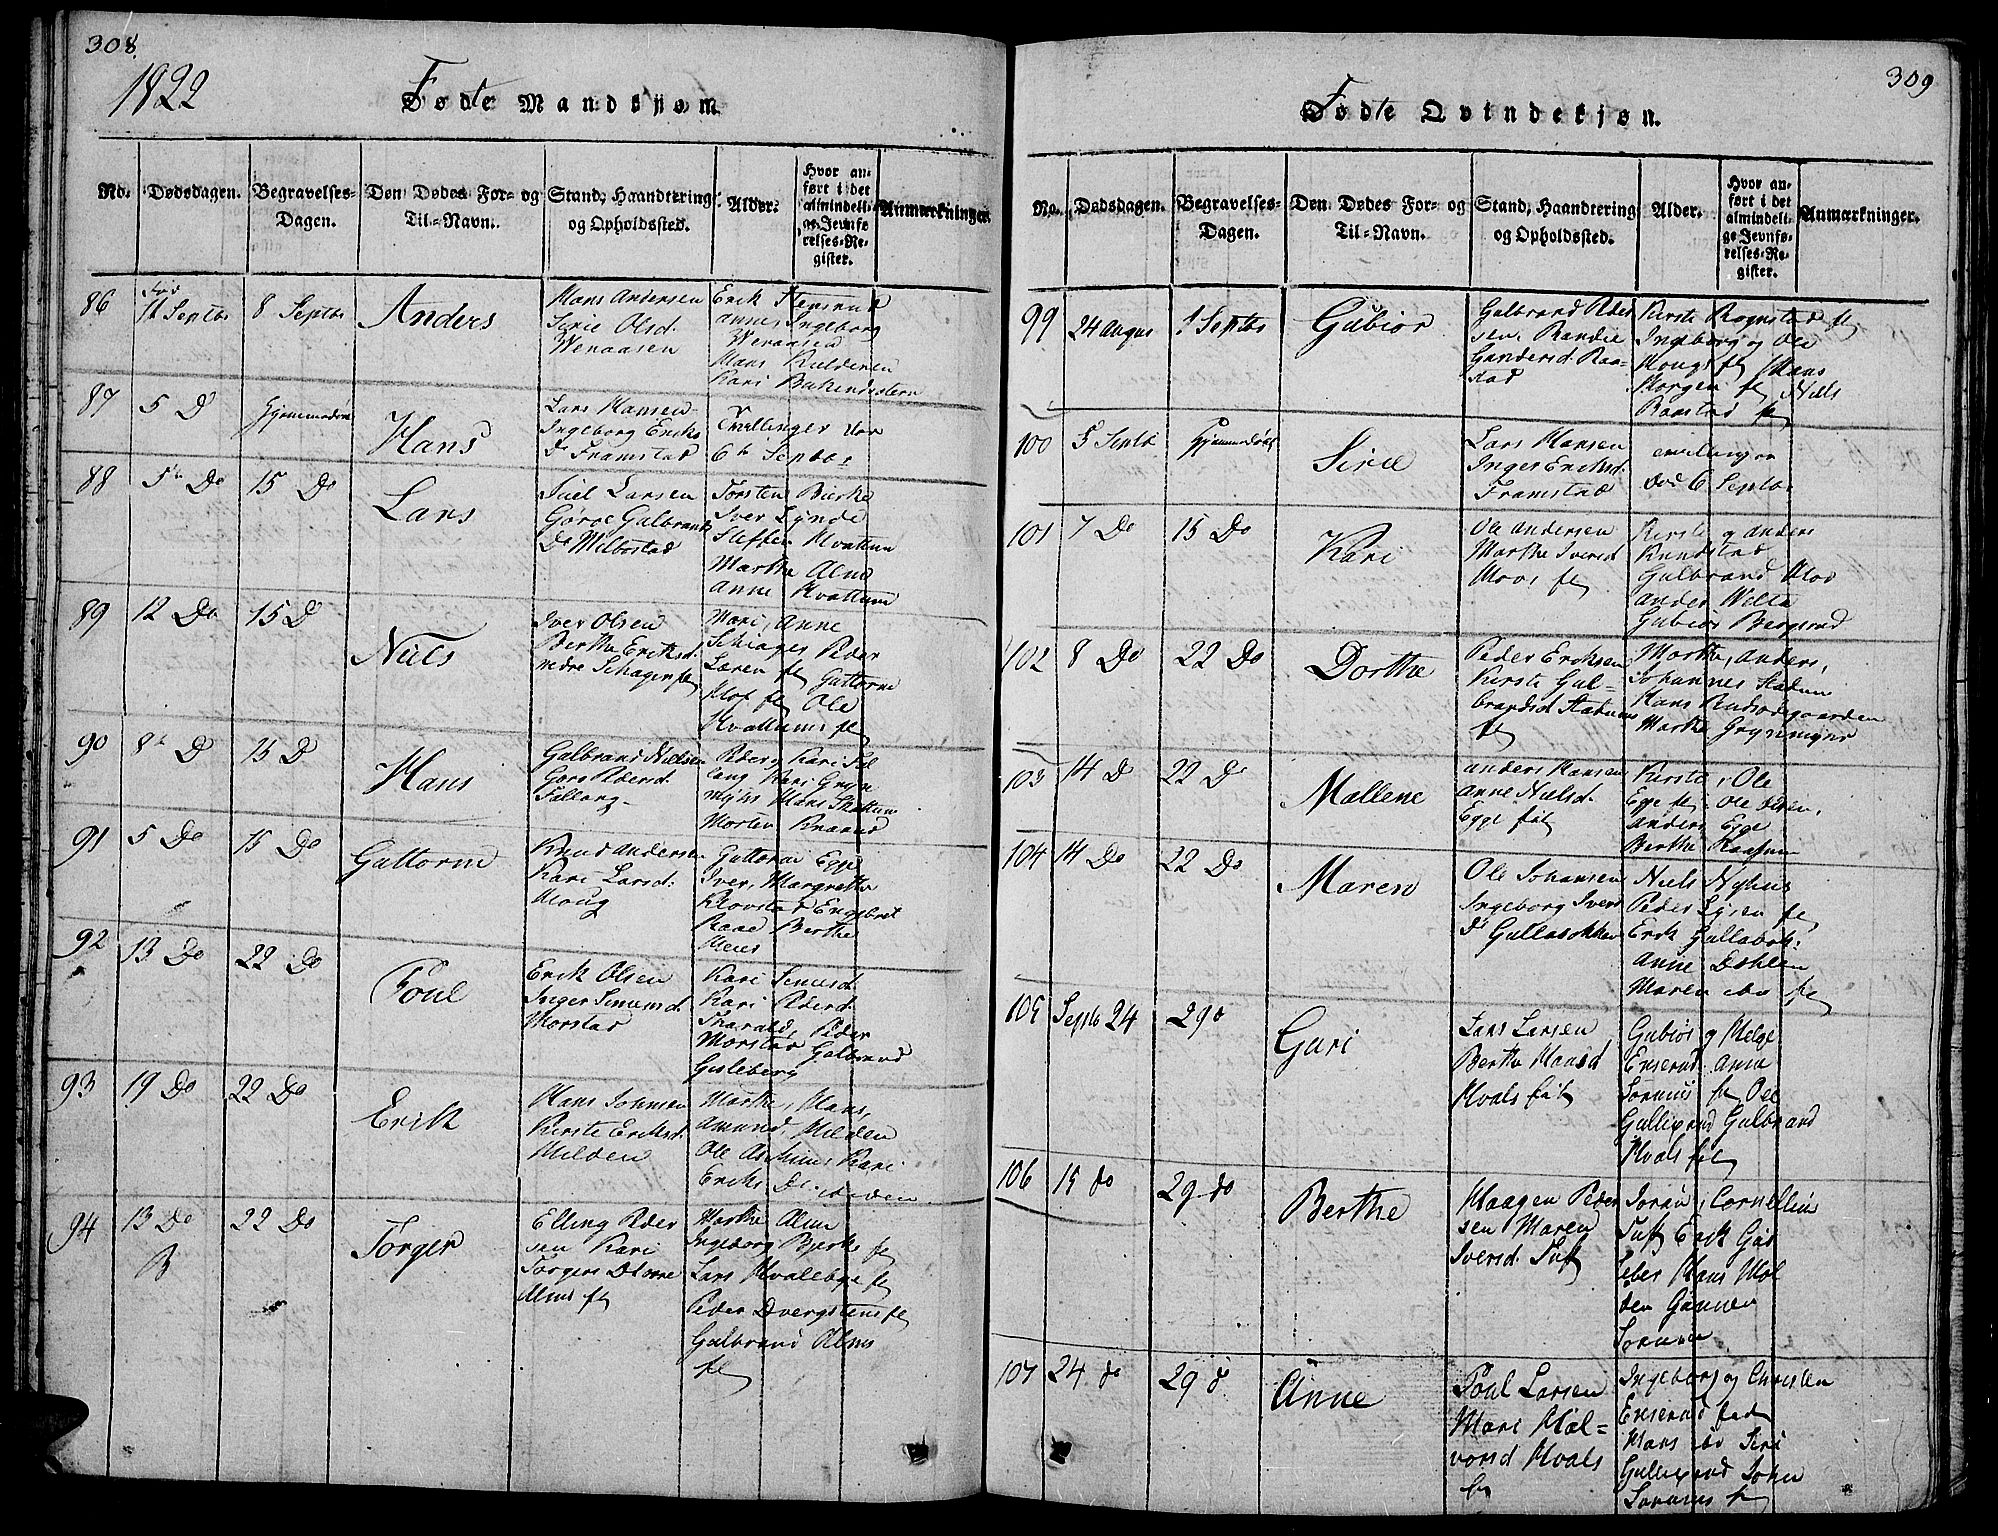 308.
1822
Fødte Mandskjøm
No.
Dødsdagen.
Begravelses-
Dagen.
Den Dødes For- og
Til-Navn.
Stand, Haandtering
og Opholdssted.
Alder.
Hvor an-
ført i det
almindeli-
ge Jevnfø-
relses-Re-
gister.
Anmærkninger.
86
Fød
8 Septbr
Anders
Hans Andersen
Sirie Olsd.
Wenaasen
Erik
Anne Ingeborg
Wenaasen
Hans
Kari
87
5 D
Hjemmedøbt
Hans
Lars Hansen
Ingeborg Eriks
D. Framstad
Tvillinger
6te Septbr
88
5te Do
15 Do
Lars
Juel Larsen
Gøroe Gulbrands
D. Melbostad
Torsten Bierke
Iver Lynde
Steffen Hvattum
Marthe Alm
Anne Hvattum
89
12 Do
15 D
Niels
Iver Olsen
Berthe Eriksd.
nedre Schagen fl
Mari, Anne
Schiages Peder
Laren fl Guttorm
Hof fl Ole
Hvattums fl
90
8de D
15 D
Hans
Gulbrand Nielsen
Gøro Pedersd.
Fallang
Peder og Kari Fal
lang Kari Gryn
Hans
Morten
91
5 Do
15 Do
Guttorm
Knud Andersen
Kari Larsd:
Houg
Guttorm Egge
Iver, Margrethe
Engebret
Berthe
92
13 Do
22 Do
Poul
Erik Olsen
Inger Simensd
Morstad
Kari Simensd
Kari Pedersd
Tharald, Peder
Morstad Gulbrand
Gisleberg
93
19 Do
22 Do
Erik
Hans Johnsen
Kirsti Eriksd.
Hilden
Marthe, Hans,
Amund, Hilden
Ole Kari
Eriks D.
94
13 Do
22 Do
Torger
Elling Peder
sen Kari
Torgers D.
Alms fl
Marthe Alm
Ingeborg Bjerke fl
Lars Hvalebye fl
Peder Dvergstens fl
Gulbrand Alms
fl
309
Fødte Qvindekjøn.
No.
Dødsdagen.
Begravelses-
Dagen.
Den Dødes For- og
Til-Navn.
Stand, Haandtering
og Opholdssted.
Alder.
Hvor an-
ført i det
almindeli-
ge Jevnfø-
relses-Re-
gister.
Anmærkninger.
99
24 Augus
1 Septbr
Gubiør
Gulbrand Peder
sen, Randie
Gundersd. Raa-
stad
Kirsti Rognstad fl
Ingeborg og Ole
Hougs fl Hans
Morgen fl Niels
Raastad fl
100
5 Septbr
Hjemmedøbt
Sirie
Lars Hansen
Inger Eriksd.
Framstad
død 6 Septbr
101
7 Do
15 Do
Kari
Ole Andersen
Marthe Iversd
Moes fl
Kirsti og Anders
Rundstad
Gulbrand Hov
Anders
Gubiør Bergerud
102
8 Do
22 Do
Dorthe
Peder Eriksen
Kirsti Gul-
brandsd Stadums
fl
Marthe, Anders,
Johannes Stadum
Hans Rudsødegaarden
Marthe Grynmyhr
103
14 D
22 D
Mallene
Anders Hansen
Anne Nielsd.
Egge fal
Kirsti, Ole
Egge fl Ole
Anders Egge
Berthe Raasum
104
14 Do
22 Do
Maren
Ole Johansen
Ingeborg Ivers
D. Gullaxokken
Niels Nyhus
Peder Lysen fl
Erik Gullaxok:
Anne Dæhlen
Maren ibd fl
105
Septb 24
29 d
Guri
Lars Larsen
Berthe Hansd
Hvals fal
Gubiør og Helge
Enserud Anne
Sorum fl Ole
Gullixrud Gulbrand
Hvals fal
106
15 do
29 do
Berthe
Haagen Peder
sen Maren
Iversd. Tuft
Joran, Cornelius
Tuft Erik Gud
Hans Hol
den Gunnen
107
24 do
29 d
Anne
Poul Larsen
Mari Hal-
vorsd Hvals
fl
Ingeborg og Christen
Enserud fal
Hans ibd Siri
Gullixrud John
Sorums fl